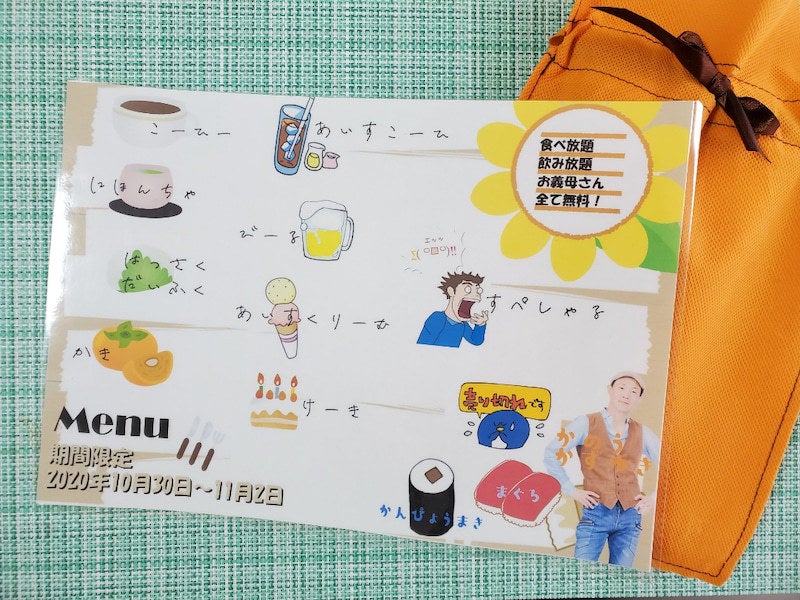 こーひー
あいすこーひ
食べ放題
飲み放題
お義母さん
全て無料！
にほんちゃ
びーる
エッッ
Σ(ﾟロﾟ)!!
はっさく
だいふく
あいすくりーむ
すぺしゃる
かき
けーき
売り切れです
Menu
期間限定
2020年10月30日〜11月2日
まぐろ
かんぴょうまき